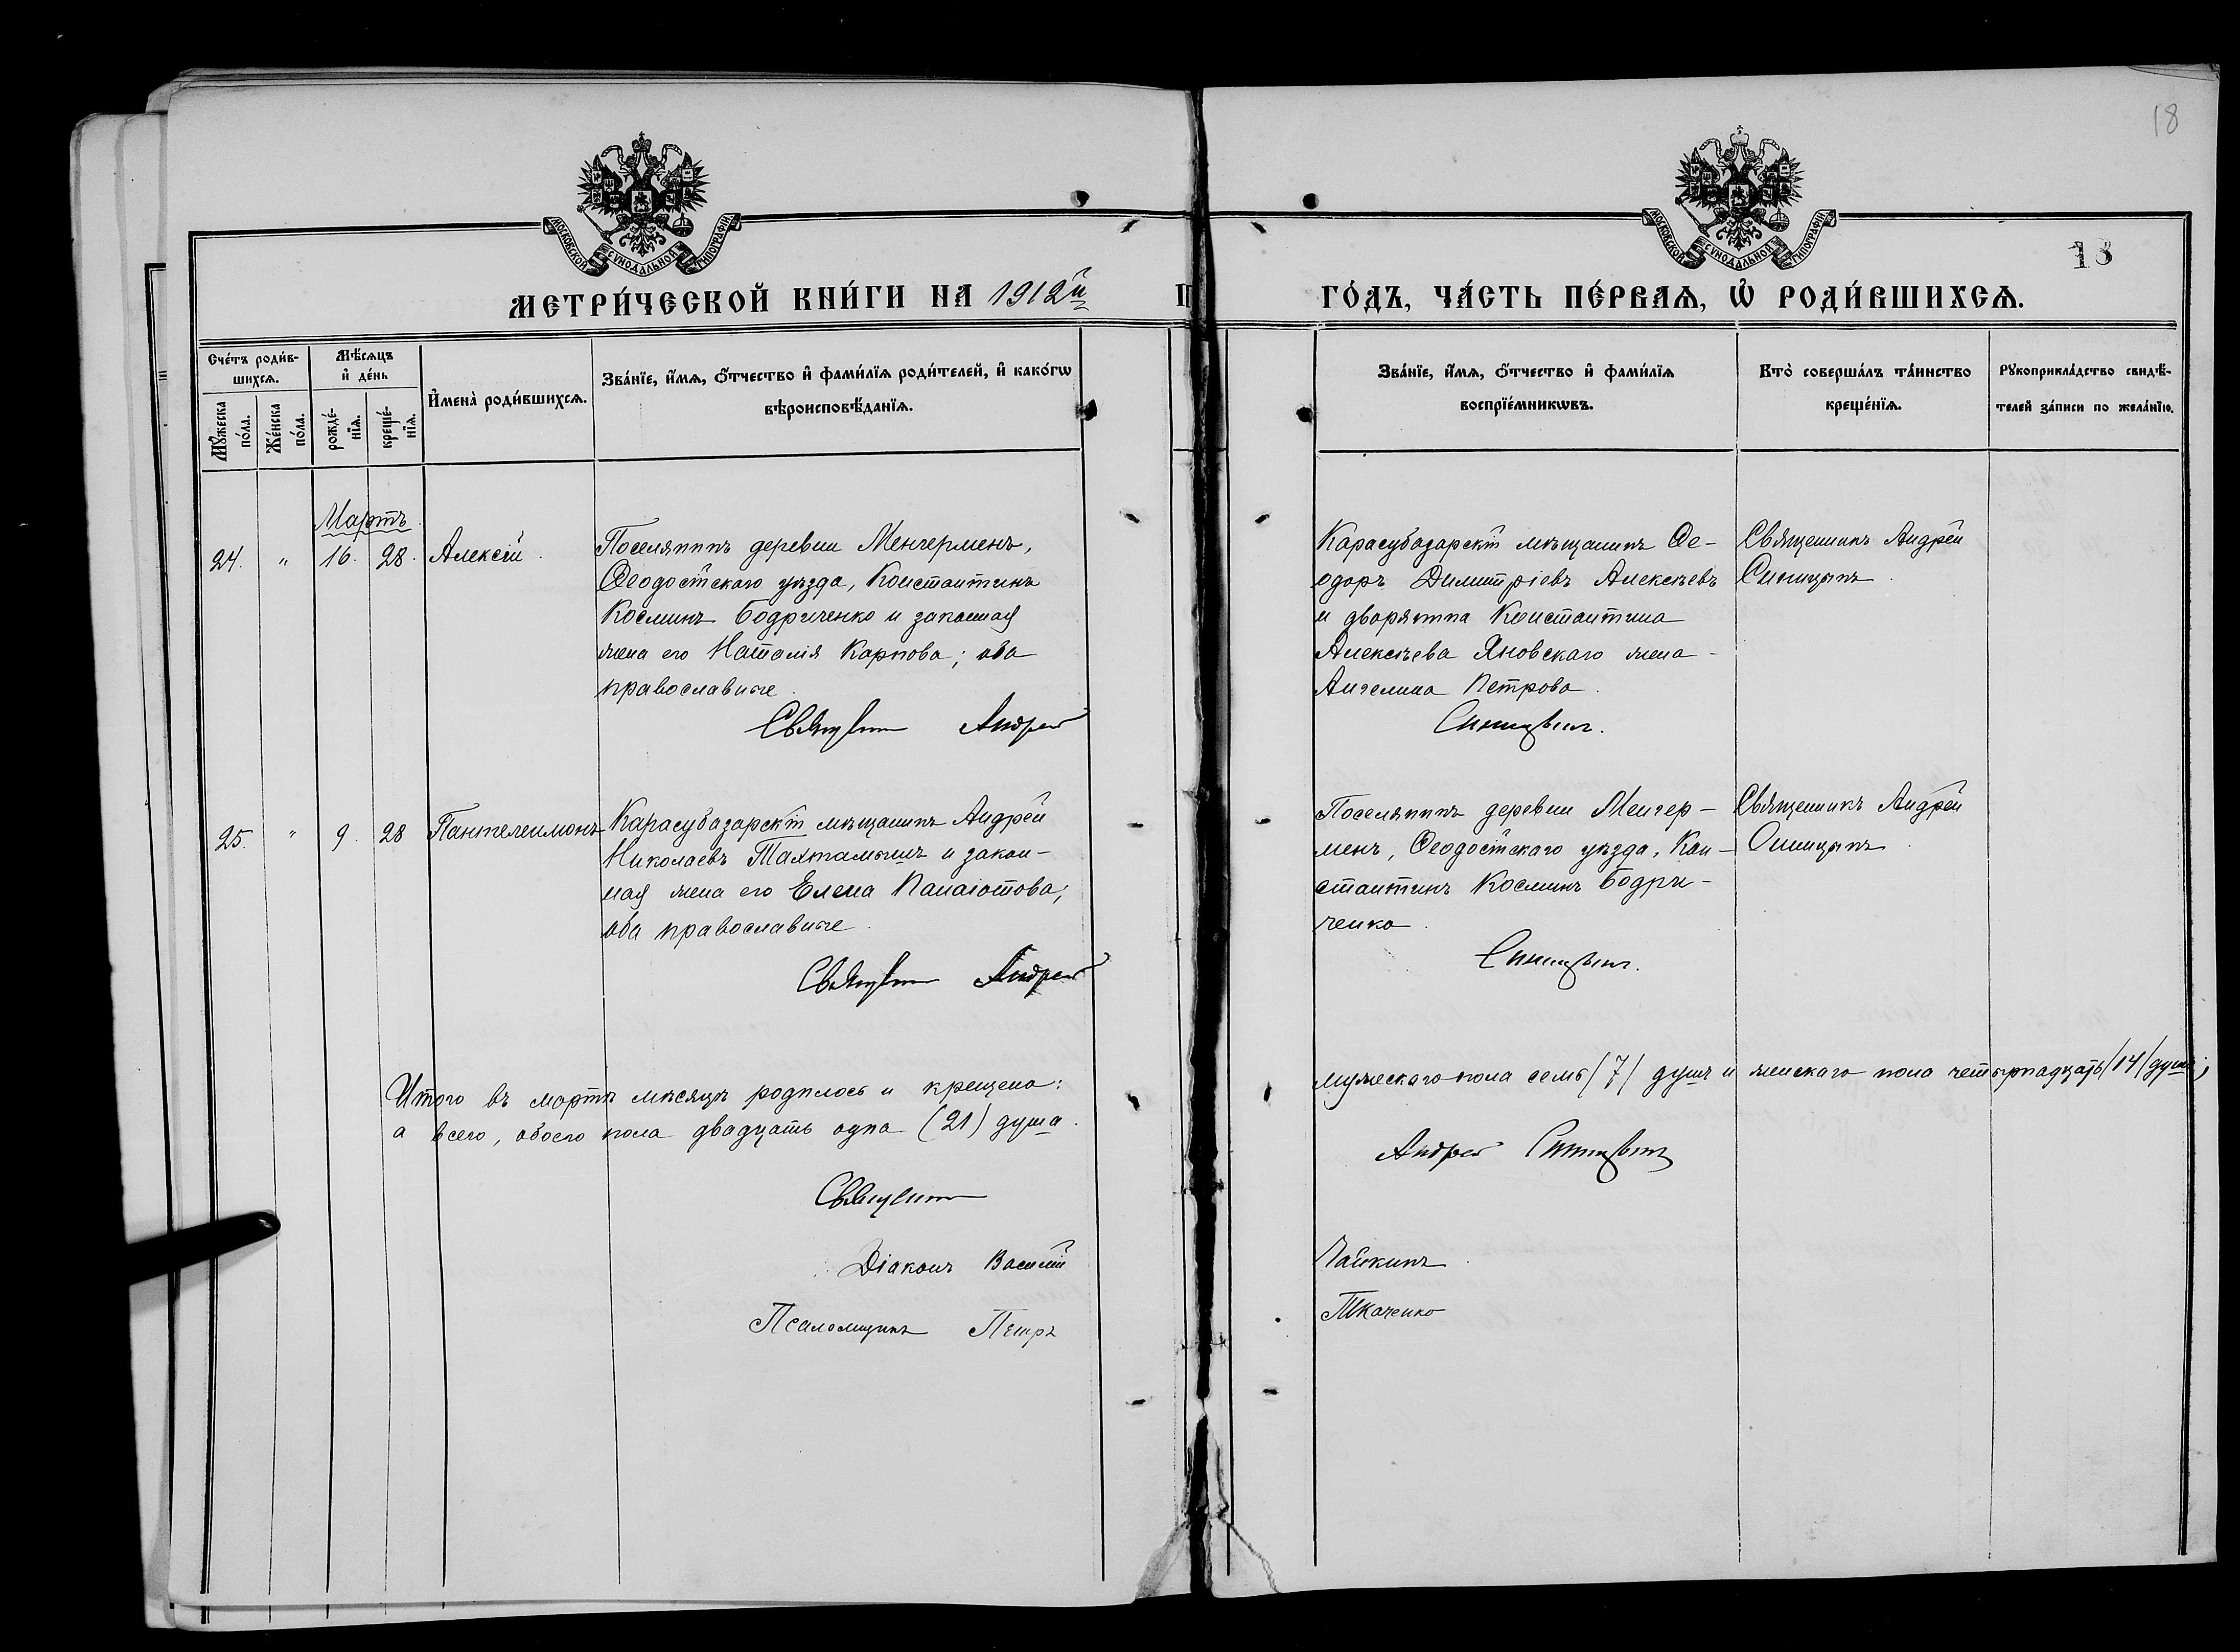 18
МОСКОВСКОЙ СѴНОДАЛЬНОЙ ТИПОГРАФІИ
МОСКОВСКОЙ СѴНОДАЛЬНОЙ ТИПОГРАФІИ
18
МЕТРИ́ЧЕСКОЙ КНИ́ГИ НА 1912й
ГО́ДЪ, ЧА́СТЬ ПЕ́РВАѦ, Ѡ҆ РОДИ́ВШИХСѦ.
Сче́тъ роди́вшихсѧ.
Мꙋ́жеска по́ла.
Же́нска по́ла.
Мѣ́сѧцъ и҆ де́нь
рожде́нїѧ.
креще́нїѧ.
И҆мена̀ роди́вшихсѧ.
Зва́нїе, и҆́мѧ, ѻ҆́тчество и҆ фами́лїѧ роди́телей, и҆ како́гѡ
вѣроисповѣ́данїѧ.
Зва́нїе, и҆́мѧ, ѻ҆́тчество и҆ фами́лїѧ
воспрїе́мникѡвъ.
Кто̀ соверша́лъ та́инство
креще́нїѧ.
Рꙋкоприкла́дство свидѣ́-
телей за́писи по жела́нїю.
Мартъ
24. " 16. 28. Алексѣй.
Поселянинъ деревни Менчерменъ,
Ѳеодосійскаго уѣзда, Константинъ
Косминъ Бодриченко и законная
жена его Наталія Карпова; оба
православные.
Священникъ Андрей
Карасубазарскій мѣщанинъ Ѳе-
одоръ Димитріевъ Алексѣевъ
и дворянина Константина
Алексѣева Яновскаго жена -
Ангелина Петрова.
Синицынъ.
Священникъ Андрей
Синицынъ.
25. " 9. 28 Пантелеимонъ
Карасубазарскій мѣщанинъ Андрей
Николаевъ Тахтамышъ и закон-
ная жена его Елена Панаіотова;
оба православные.
Священникъ Андрей
Поселянинъ деревни Менчер-
менъ, Ѳеодосійскаго уѣзда, Кон-
стантинъ Косминъ Бодри-
ченко.
Синицынъ.
Священникъ Андрей
Синицынъ.
Итого въ мартѣ мѣсяцѣ родилось и крещено:
мужескаго пола семь /7/ душъ и женскаго пола четырнадцать /14/ душъ;
а всего, обоего пола двадцать одна (21) душа.
Священникъ
Андрей Синицынъ
Діаконъ Василій
Чайкинъ.
Псаломщикъ Петръ
Ткаченко